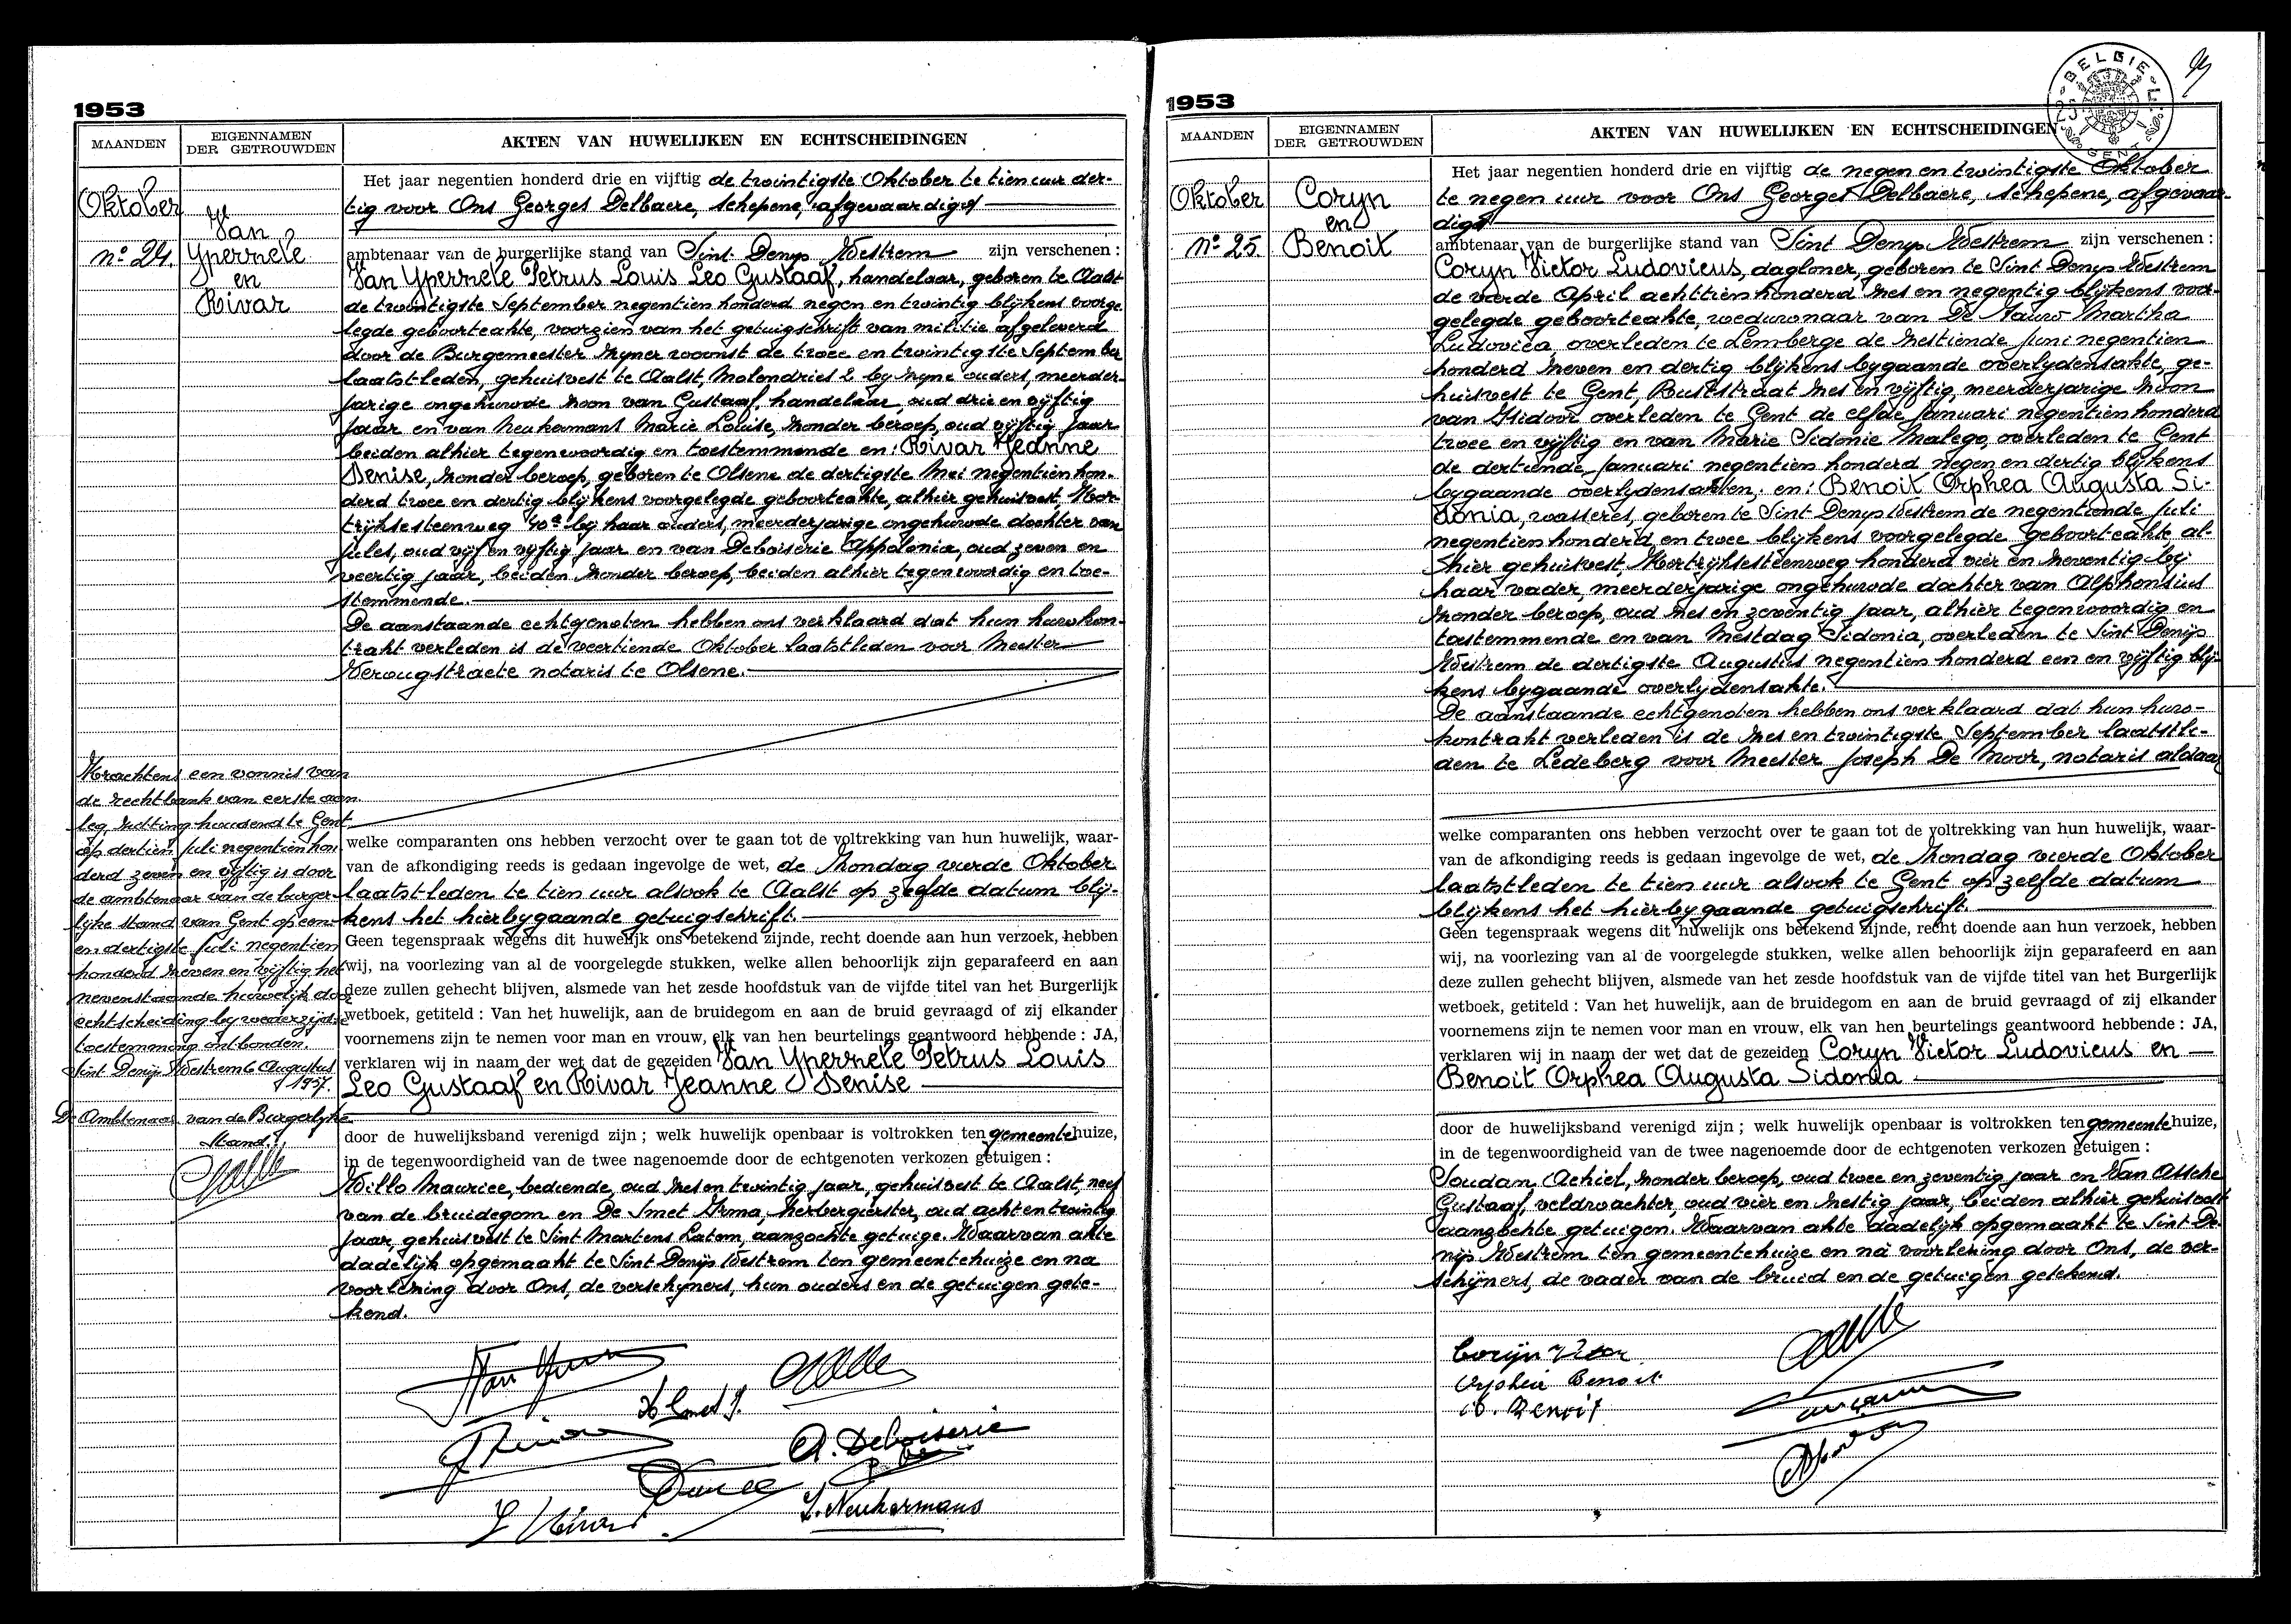 1953
MAANDEN
EIGENNAMEN
DER GETROUWDEN
AKTEN VAN HUWELIJKEN EN ECHTSCHEIDINGEN
Oktober
n° 24.
Van
Yperzele
en
Rivar
Het jaar negentien honderd drie en vijftig de twintigste Oktober te tien uur der-
tig voor Ons Georges Delbaere, schepene, afgevaardigd
ambtenaar van de burgerlijke stand van Sint Denys Westrem zijn verschenen :
Van Yperzele Petrus Louis Leo Gustaaf, handelaar, geboren te Aalst
de twintigste September negentien honderd negen en twintig blijkens voorge-
legde geboorteakte, voorzien van het getuigschrift van militie afgeleverd
door de Burgemeester zyner woonst de twee en twintigste September
laatstleden, gehuisvest te Aalst, Molendries 2 by zyne ouders, meerder-
jarige ongehuwde zoon van Gustaaf, handelaar, oud drie en vijftig
jaar en van Neukermans Marie Louise, zonder beroep, oud vijftig jaar
beiden alhier tegenwoordig en toestemmende en: Rivar Jeanne
Denise, zonder beroep, geboren te Olsene de dertigste Mei negentien hon-
derd twee en dertig blijkens voorgelegde geboorteakte, alhier gehuisvest, Kor-
trijksesteenweg 40a bij haar ouders, meerderjarige ongehuwde dochter van
Jules, oud vijf en vijftig jaar en van Deboiserie Appolonia, oud zeven en
veertig jaar, beiden zonder beroep, beiden alhier tegenwoordig en toe-
stemmende.
De aanstaande echtgenoten hebben ons verklaard dat hun huwkon-
trakt verleden is de veertiende Oktober laatstleden voor Meester
Verougstraete notaris te Olsene.
Krachtens een vonnis van
de rechtbank van eerste aan
leg, zitting houdend te Gent,
op dertien Juli negentien hon
derd zeven en vijftig is door
de ambtenaar van de burger-
lijke stand van Gent op een-
en dertigste Juli negentien
honderd zeven en vijftig het
nevenstaande huwelijk door
echtscheiding by wederzijdse
toestemming ontbonden.
Sint Denijs Westrem 6 Augustus
1957.
De Ambtenaar van de Burgerlijke
Stand,
welke comparanten ons hebben verzocht over te gaan tot de voltrekking van hun huwelijk, waar-
van de afkondiging reeds is gedaan ingevolge de wet, de Zondag vierde Oktober
laatstleden te tien uur alsook te Aalst op zelfde datum blij-
kens het hierbygaande getuigschrift.
Geen tegenspraak wegens dit huwelijk ons betekend zijnde, recht doende aan hun verzoek, hebben
wij, na voorlezing van al de voorgelegde stukken, welke allen behoorlijk zijn geparafeerd en aan
deze zullen gehecht blijven, alsmede van het zesde hoofdstuk van de vijfde titel van het Burgerlijk
wetboek, getiteld : Van het huwelijk, aan de bruidegom en aan de bruid gevraagd of zij elkander
voornemens zijn te nemen voor man en vrouw, elk van hen beurtelings geantwoord hebbende : JA,
verklaren wij in naam der wet dat de gezeiden Van Yperzele Petrus Louis
Leo Gustaaf en Rivar Jeanne Denise
door de huwelijksband verenigd zijn ; welk huwelijk openbaar is voltrokken ten gemeentehuize,
in de tegenwoordigheid van de twee nagenoemde door de echtgenoten verkozen getuigen :
Willo Maurice, bediende, oud zes en twintig jaar, gehuisvest te Aalst, neef
van de bruidegom en De Smet Irma, herbergierster, oud acht en twintig
jaar, gehuisvest te Sint Martens Latem, aanzochte getuige. Waarvan akte
dadelijk opgemaakt te Sint Denijs Westrem ten gemeentehuize en na
voorlezing door Ons, de verschijners, hun ouders en de getuigen gete-
kend.
A. Deboiserie
L. Neukermans
1953
MAANDEN
EIGENNAMEN
DER GETROUWDEN
AKTEN VAN HUWELIJKEN EN ECHTSCHEIDINGEN
BELGIE
GENT
Oktober
n° 25
Coryn
en
Benoit
Het jaar negentien honderd drie en vijftig de negen en twintigste Oktober
te negen uur voor Ons Georges Delbaere, schepene, afgevaar-
digd
ambtenaar van de burgerlijke stand van Sint Denys Westrem zijn verschenen :
Coryn Victor Ludovicus, dagloner, geboren te Sint Denys Westrem
de vierde April achttien honderd zes en negentig blijkens voor-
gelegde geboorteakte, weduwnaar van De Nauw Martha
Ludovica, overleden te Lemberge de zestiende Juni negentien
honderd zeven en dertig blijkens bygaande overlydensakte, ge-
huisvest te Gent, Ruststraat zes en vijftig, meerderjarige zoon
van Isidoor overleden te Gent de elfde Januari negentien honderd
twee en vijftig en van Marie Sidonie Malego, overleden te Gent
de dertiende Januari negentien honderd negen en dertig blijkens
bygaande overlydensakten; en: Benoit Orphea Augusta Si-
donia, wasseres, geboren te Sint Denys Westrem de negentiende Juli
negentien honderd en twee blijkens voorgelegde geboorteakte, al-
hier gehuisvest, Kortrijksesteenweg honderd vier en zeventig bij
haar vader, meerderjarige ongehuwde dochter van Alphonsius
zonder beroep, oud zes en zeventig jaar, alhier tegenwoordig en
toestemmende en van Mestdag Sidonia, overleden te Sint Denijs
Westrem de dertigste Augustus negentien honderd een en vijftig blij-
kens bygaande overlijdensakte.
De aanstaande echtgenoten hebben ons verklaard dat hun huw-
kontrakt verleden is de zes en twintigste September laatstle-
den te Ledeberg voor Meester Joseph De Moor, notaris aldaar
welke comparanten ons hebben verzocht over te gaan tot de voltrekking van hun huwelijk, waar-
van de afkondiging reeds is gedaan ingevolge de wet, de Zondag vierde Oktober
laatstleden te tien uur alsook te Gent op zelfde datum
blijkens het hierbygaande getuigschrift.
Geen tegenspraak wegens dit huwelijk ons betekend zijnde, recht doende aan hun verzoek, hebben
wij, na voorlezing van al de voorgelegde stukken, welke allen behoorlijk zijn geparafeerd en aan
deze zullen gehecht blijven, alsmede van het zesde hoofdstuk van de vijfde titel van het Burgerlijk
wetboek, getiteld : Van het huwelijk, aan de bruidegom en aan de bruid gevraagd of zij elkander
voornemens zijn te nemen voor man en vrouw, elk van hen beurtelings geantwoord hebbende : JA,
verklaren wij in naam der wet dat de gezeiden Coryn Victor Ludovicus en
Benoit Orphea Augusta Sidonia
door de huwelijksband verenigd zijn ; welk huwelijk openbaar is voltrokken ten gemeentehuize,
in de tegenwoordigheid van de twee nagenoemde door de echtgenoten verkozen getuigen :
Soudan Achiel, zonder beroep, oud twee en zeventig jaar en Van Assche
Gustaaf, veldwachter, oud vier en zestig jaar, beiden alhier gehuisvest
aanzochte getuigen. Waarvan akte dadelijk opgemaakt te Sint De-
nijs Westrem ten gemeentehuize en na voorlezing door Ons, de ver-
schijners, de vader van de bruid en de getuigen getekend.
Corijn
Orphea Benoit
Benoit